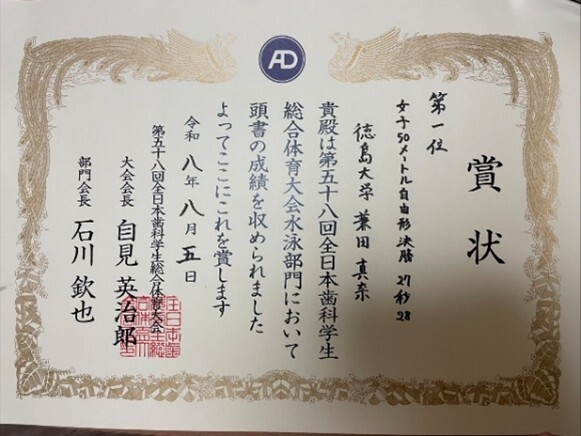 AD
賞状
第一位
女子50メートル自由形決勝 27秒28
徳島大学 兼田 真奈
貴殿は第五十八回全日本歯科学生
総合体育大会水泳部門において
頭書の成績を収められました
よってここにこれを賞します
令和八年八月五日
第五十八回全日本歯科学生総合体育大会
大会会長 自見 英治郎
部門会長 石川 欽也